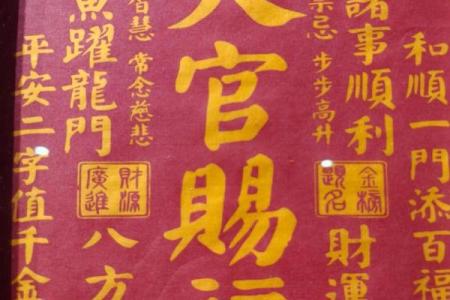 和順一門添百福
諸事順利
金榜
題名
財運
禁忌
步步高升
官賜
智慧
常念慈悲
魚躍龍門
財源
廣進
八方
平安二字值千金